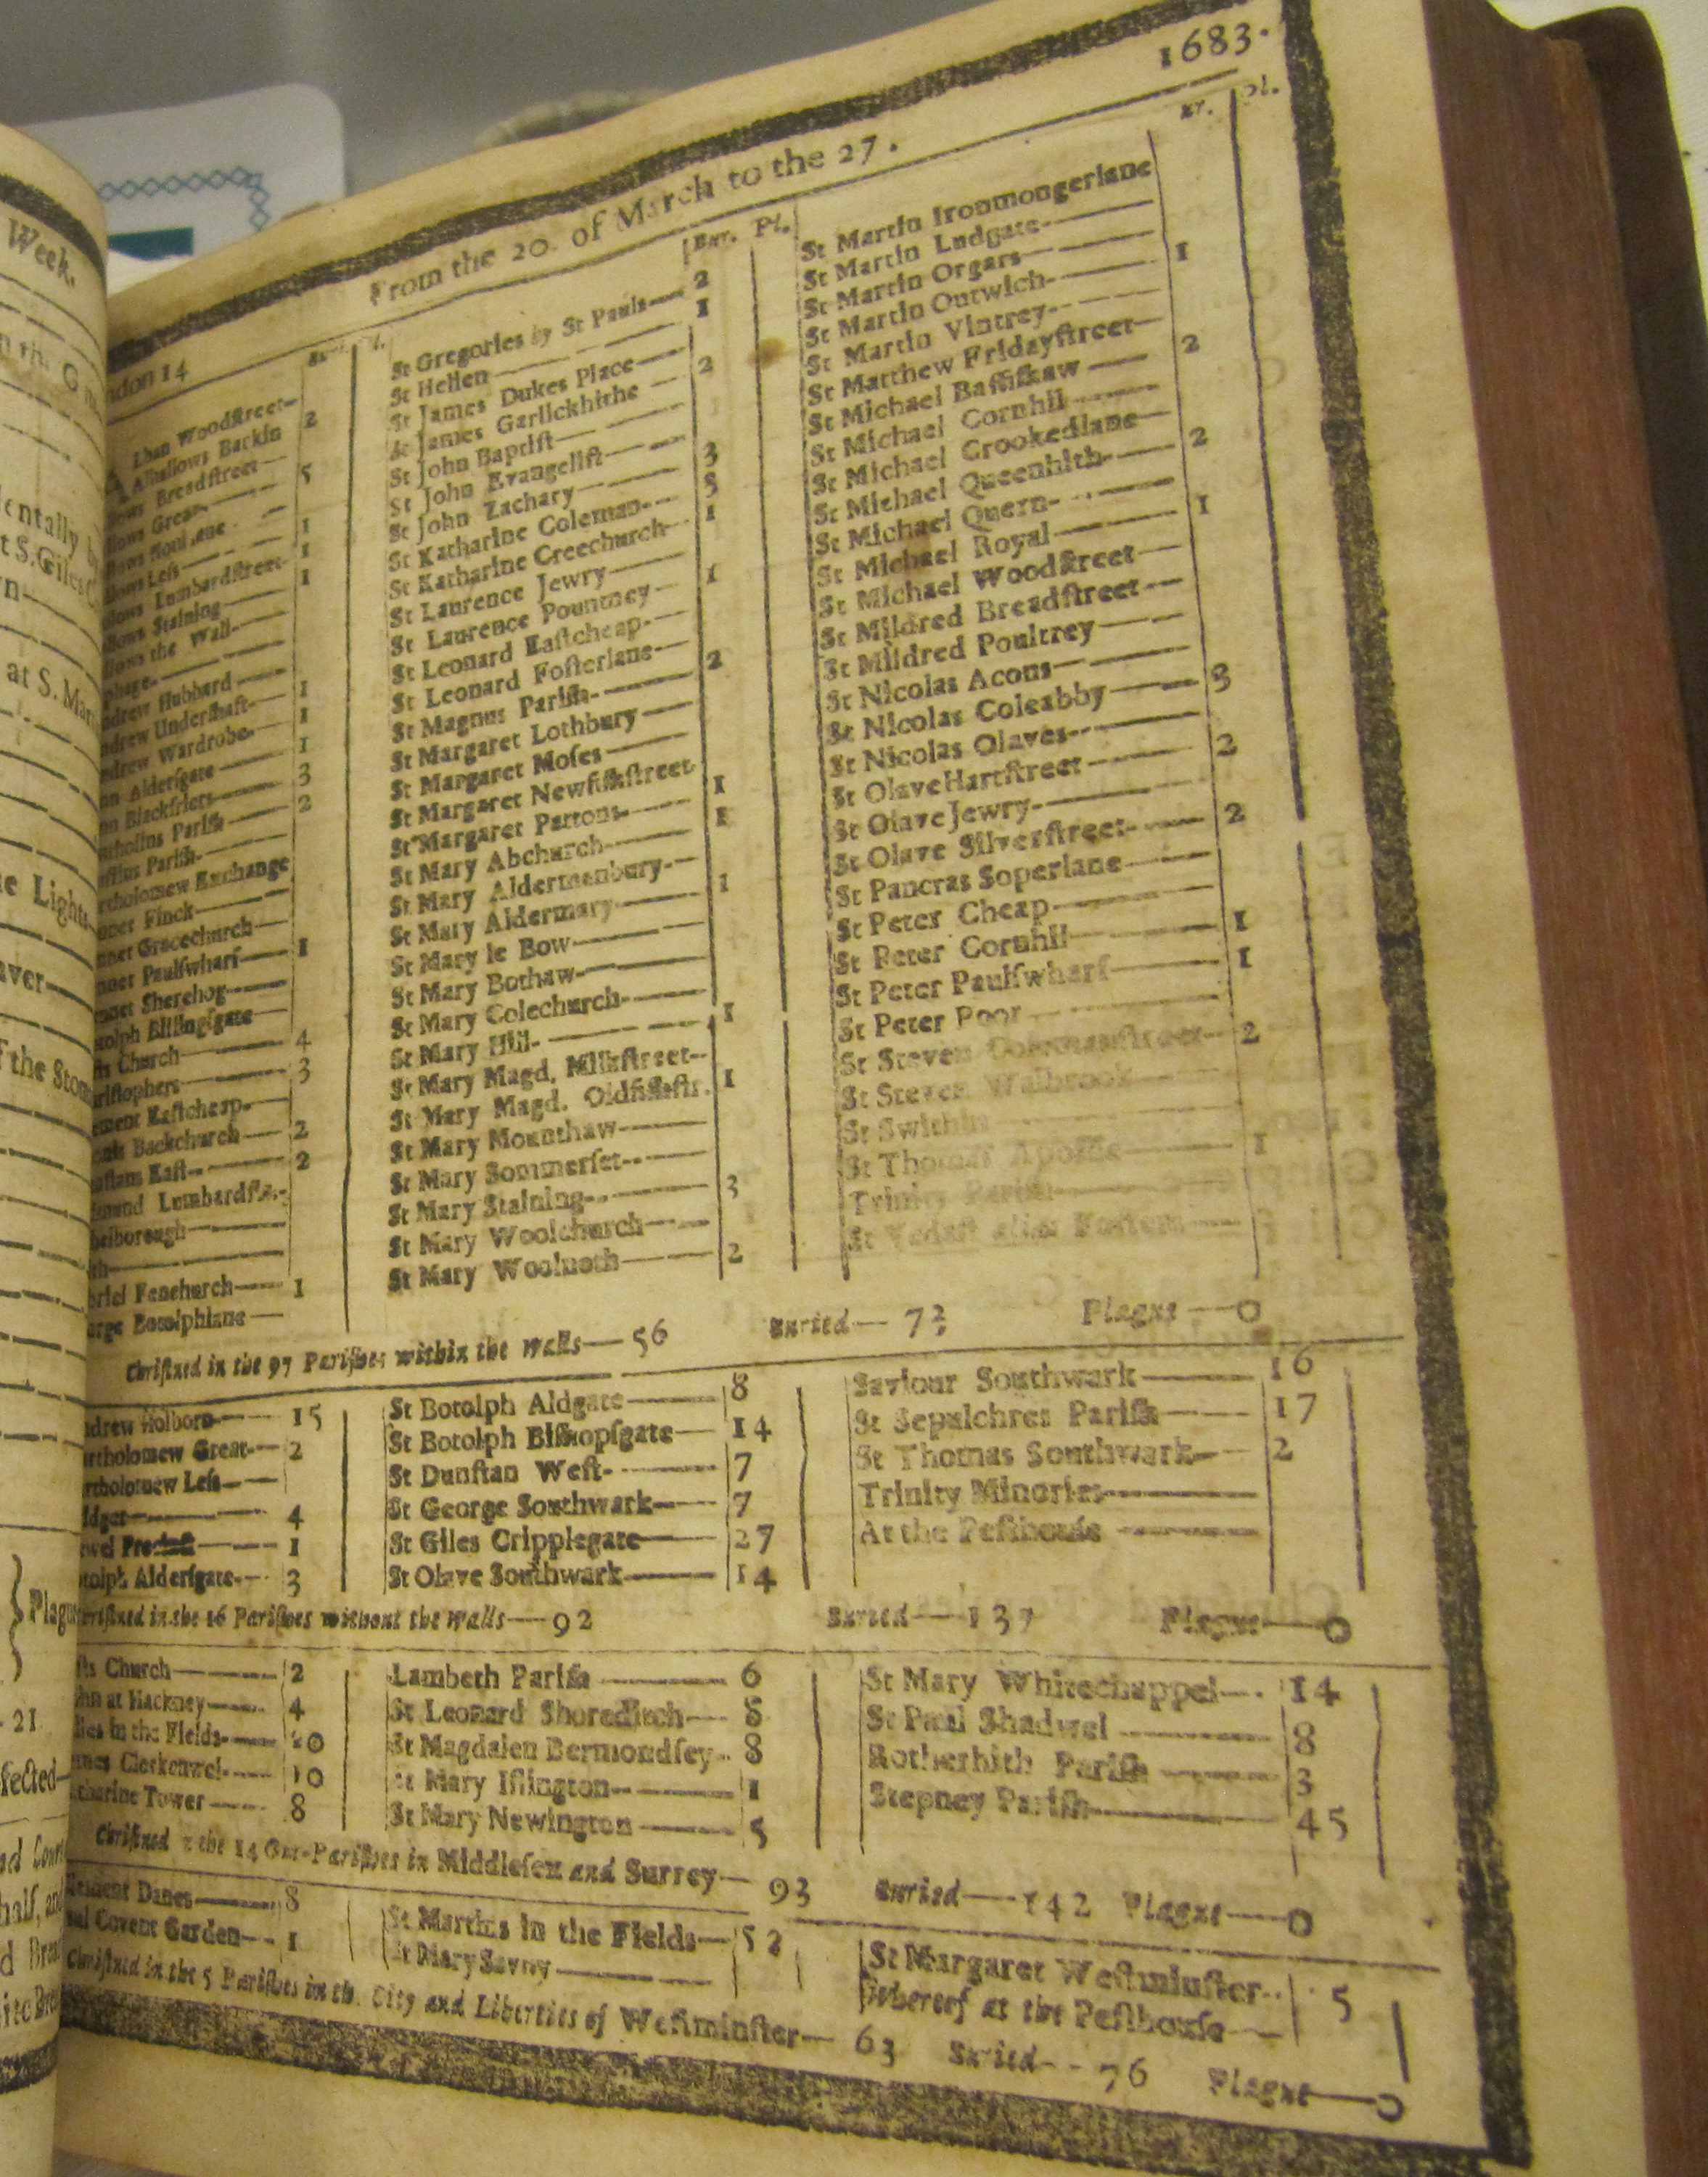 Week.
at S. Mar
the Stom
Plagu
21
1683.
From the 20. of March to the 27.
ndon 14
lban Woodſtreet
Alhallows Barkin 2
lows Breadſtreet
lows Great 5
lows Leſs 1
lows Lumbardſtreet 1
lows Staining 1
lows the Wall
phage
drew Hubbard 1
drew Underſhaft 1
drew Wardrobe 1
nn Alderſgate 3
nn Blackfriers 2
rtholomew Exchange
nnet Finck
nnet Gracechurch
nnet Paulſwharf 1
nnet Sherehog
tolph Billingſgate
ſts Church 4
riſtophers 3
ement Eaſtcheap
onis Backchurch 2
nſtans Eaſt 2
mund Lumbardſtr.
helborough
th
briel Fenchurch 1
orge Botolphlane
Bur. Pl.
St Gregories by St Pauls 2
St Hellen 1
St James Dukes Place
St James Garlickhithe 2
St John Baptiſt
St John Evangeliſt
St John Zachary 3
St Katharine Coleman 3
St Katharine Creechurch 1
St Laurence Jewry
St Laurence Pountney 1
St Leonard Eaſtcheap
St Leonard Foſterlane
St Magnus Pariſh 2
St Margaret Lothbury
St Margaret Moſes
St Margaret Newfiſhſtreet
St Margaret Pattons 1
St Mary Abchurch 1
St Mary Aldermanbury
St Mary Aldermary 1
St Mary le Bow
St Mary Bothaw
St Mary Colechurch
St Mary Hill 1
St Mary Magd. Milkſtreet
St Mary Magd. Oldfiſhſtr. 1
St Mary Mounthaw
St Mary Sommerſet
St Mary Staining 3
St Mary Woolchurch
St Mary Woolnoth 2
St Martin Ironmongerlane
St Martin Ludgate
St Martin Orgars
St Martin Outwich 1
St Martin Vintrey
St Matthew Fridayſtreet
St Michael Baſſiſhaw 2
St Michael Cornhil
St Michael Crookedlane
St Michael Queenhith 2
St Michael Quern
St Michael Royal 1
St Michael Woodſtreet
St Mildred Breadſtreet
St Mildred Poultrey
St Nicolas Acons
St Nicolas Coleabby 3
St Nicolas Olaves
St Olave Hartſtreet 2
St Olave Jewry
St Olave Silverſtreet 2
St Pancras Soperlane
St Peter Cheap
St Peter Cornhil 1
St Peter Paulſwharf 1
St Peter Poor
St Steven Colemanſtreet 2
St Steven Walbrook
St Swithin
St Thomas Apoſtle 1
Trinity Pariſh
St Vedaſt alias Foſters
Chriſtned in the 97 Pariſhes within the Walls— 56 Buried— 73 Plague—0
ndrew Holborn 15
artholomew Great 2
artholomew Leſs
idget 4
ewel Precinct 1
otolph Alderſgate 3
St Botolph Aldgate 8
St Botolph Biſhopſgate 14
St Dunſtan Weſt 7
St George Southwark 7
St Giles Cripplegate 27
St Olave Southwark 14
Saviour Southwark 16
St Sepulchres Pariſh 17
St Thomas Southwark 2
Trinity Minories
At the Peſthouſe
Chriſtned in the 16 Pariſhes without the Walls—92 Buried—137 Plague—0
ſts Church 2
ohn at Hackney 4
iles in the Fields 20
ames Clerkenwel 10
atharine Tower 8
Lambeth Pariſh 6
St Leonard Shoreditch 8
St Magdalen Bermondſey 8
St Mary Iſlington 1
St Mary Newington 5
St Mary Whitechappel 14
St Paul Shadwel 8
Rotherhith Pariſh 3
Stepney Pariſh 45
Chriſtned in the 14 Out-Pariſhes in Middleſex and Surrey— 93 Buried—142 Plague—0
lement Danes 8
aul Covent Garden 1
St Martins in the Fields 52
St Mary Savoy
St Margaret Weſtminſter 5
Whereof at the Peſthouſe
Chriſtned in the 5 Pariſhes in the City and Liberties of Weſtminſter— 63 Buried— 76 Plague—0